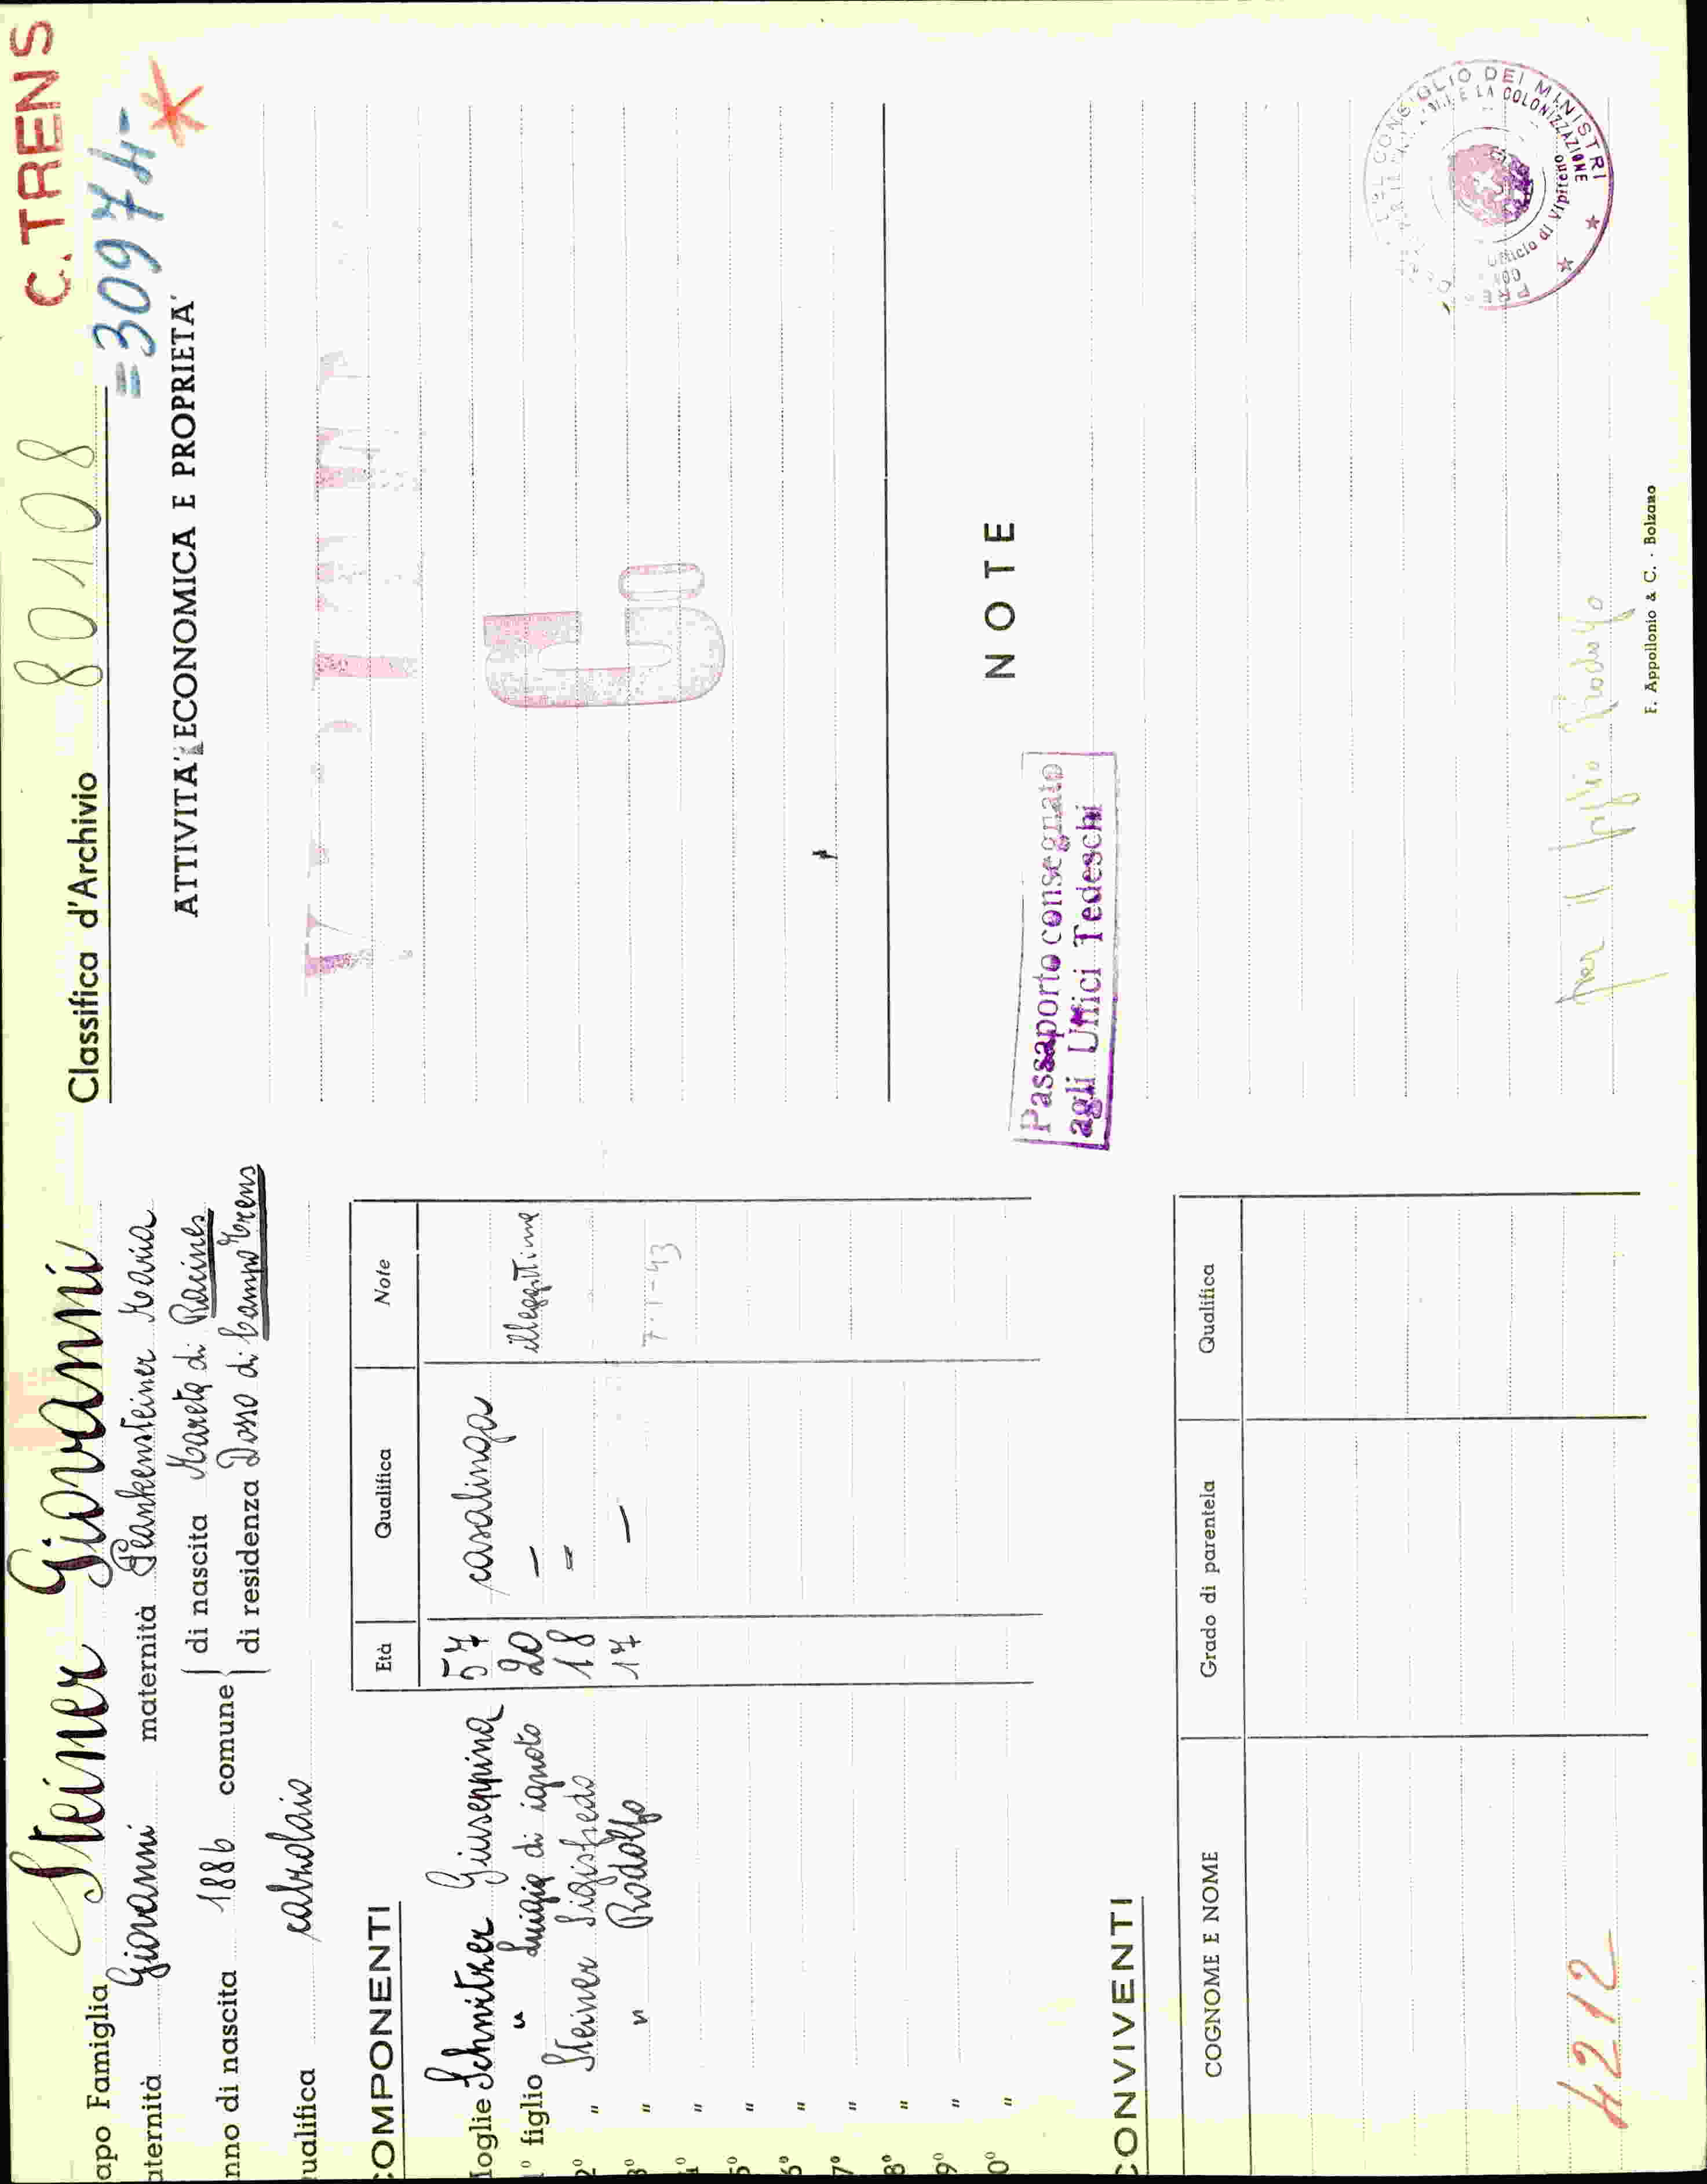 C. TRENS
apo Famiglia Steiner Giovanni
aternità Giovanni maternità Plankensteiner Maria
nno di nascita 1886 comune
di nascita Mareta di Racines
di residenza Dosso di Campo Trens
ualifica calzolaio
COMPONENTI
Età Qualifica Note
Moglie Schmitzer Giuseppina 57 casalinga
1° figlio " Luigia di ignoto 20 – illegittima
2° " Steiner Sigisfredo 18 =
3° " " Rodolfo 17 – 7-1-43
4° "
5° "
6° "
7° "
8° "
9° "
0° "
CONVIVENTI
COGNOME E NOME Grado di parentela Qualifica
4212
Classifica d'Archivio 80108
=30974-
ATTIVITA' ECONOMICA E PROPRIETA'
NOTE
Passaporto consegnato
agli Uffici Tedeschi
CONSIGLIO DEI MINISTRI
E LA COLONIZZAZIONE
Ufficio di Vipiteno
per il figlio Rodolfo
F. Appollonio & C. - Bolzano